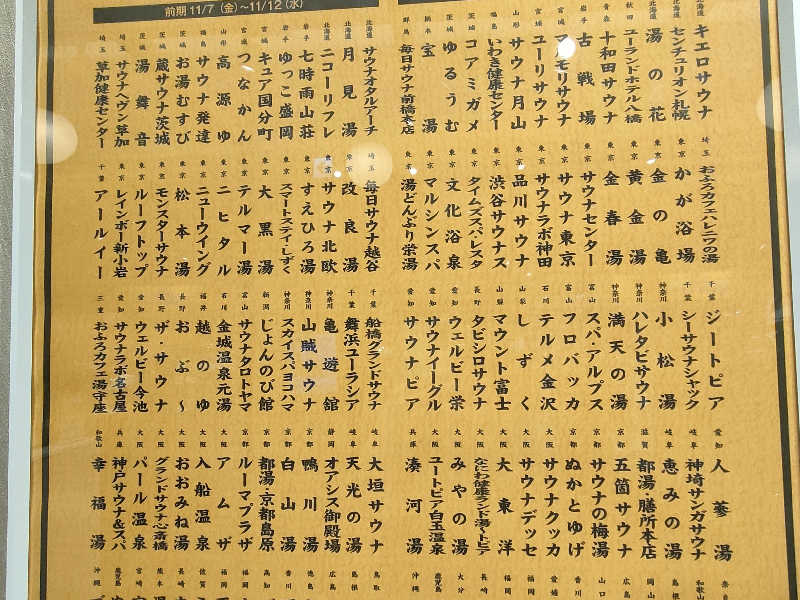 前期 11/7 (金)～11/12 (水)
北海道 キエロサウナ
北海道 センチュリオン札幌
北海道 湯の花
秋田 ユーランドホテル八橋
青森 十和田サウナ
岩手 古戦場
宮城 マルモリサウナ
宮城 ユーリサウナ
山形 サウナ月山
福島 いわき健康センター
茨城 コアミガメ
茨城 ゆるうむ
栃木 宝湯
群馬 毎日サウナ前橋本店
北海道 サウナオタルアーチ
北海道 月見湯
北海道 ニコーリフレ
岩手 七時雨山荘
岩手 ゆっこ盛岡
宮城 キュア国分町
宮城 つなかん
山形 高源ゆ
福島 サウナ発達
茨城 お湯むすび
茨城 蔵サウナ茨城
茨城 湯舞音
埼玉 サウナヘヴン草加
埼玉 草加健康センター
埼玉 おふろカフェハレニワの湯
東京 かが浴場
東京 金の亀
東京 黄金湯
東京 金春湯
東京 サウナセンター
東京 サウナ東京
東京 サウナラボ神田
東京 品川サウナ
東京 渋谷サウナス
東京 タイムズスパ・レスタ
東京 文化浴泉
東京 マルシンスパ
東京 湯どんぶり栄湯
埼玉 毎日サウナ越谷
東京 改良湯
東京 サウナ北欧
東京 すえひろ湯
東京 スマートステイ・しずく
東京 大黒湯
東京 テルマー湯
東京 ニヒタル
東京 ニューウイング
東京 松本湯
東京 モンスターサウナ
東京 ルーフトップ
東京 レインボー新小岩
千葉 アールイー
千葉 ジートピア
千葉 シーサウナシャック
神奈川 小松湯
神奈川 ハレタビサウナ
神奈川 満天の湯
富山 スパ・アルプス
富山 フロバッカ
石川 テルメ金沢
山梨 しずく
山梨 マウント富士
長野 タビシロサウナ
愛知 ウェルビー栄
愛知 サウナイーグル
愛知 サウナピア
千葉 船橋グランドサウナ
千葉 舞浜ユーラシア
神奈川 亀遊館
神奈川 山賊サウナ
神奈川 スカイスパヨコハマ
新潟 じょんのび館
富山 サウナタロトヤマ
石川 金城温泉元湯
福井 越のゆ
長野 おぶ～
長野 ザ・サウナ
愛知 ウェルビー今池
愛知 サウナラボ名古屋
三重 おふろカフェ湯守座
愛知 人蔘湯
岐阜 神埼サンガサウナ
岐阜 恵みの湯
滋賀 都湯・膳所本店
京都 五箇サウナ
京都 サウナの梅湯
京都 ぬかとゆげ
大阪 サウナクッカ
大阪 サウナデッセ
大阪 大東洋
大阪 なにわ健康ランド湯～トピア
大阪 みやの湯
大阪 ユートピア白玉温泉
兵庫 湊河湯
岐阜 大垣サウナ
岐阜 天光の湯
静岡 オアシス御殿場
京都 鴨川湯
京都 白山湯
京都 都湯・京都島原
京都 ルーマプラザ
大阪 アムザ
大阪 入船温泉
大阪 おおみね湯
大阪 グランドサウナ心斎橋
大阪 パール温泉
兵庫 神戸サウナ&スパ
和歌山 幸福湯
奈良
和歌山
島根
岡山
広島
山口
香川
愛媛
福岡
福岡
長崎
大分
鹿児島
沖縄
鳥取
島根
広島
徳島
香川
高知
福岡
福岡
佐賀
長崎
熊本
宮崎
鹿児島
沖縄